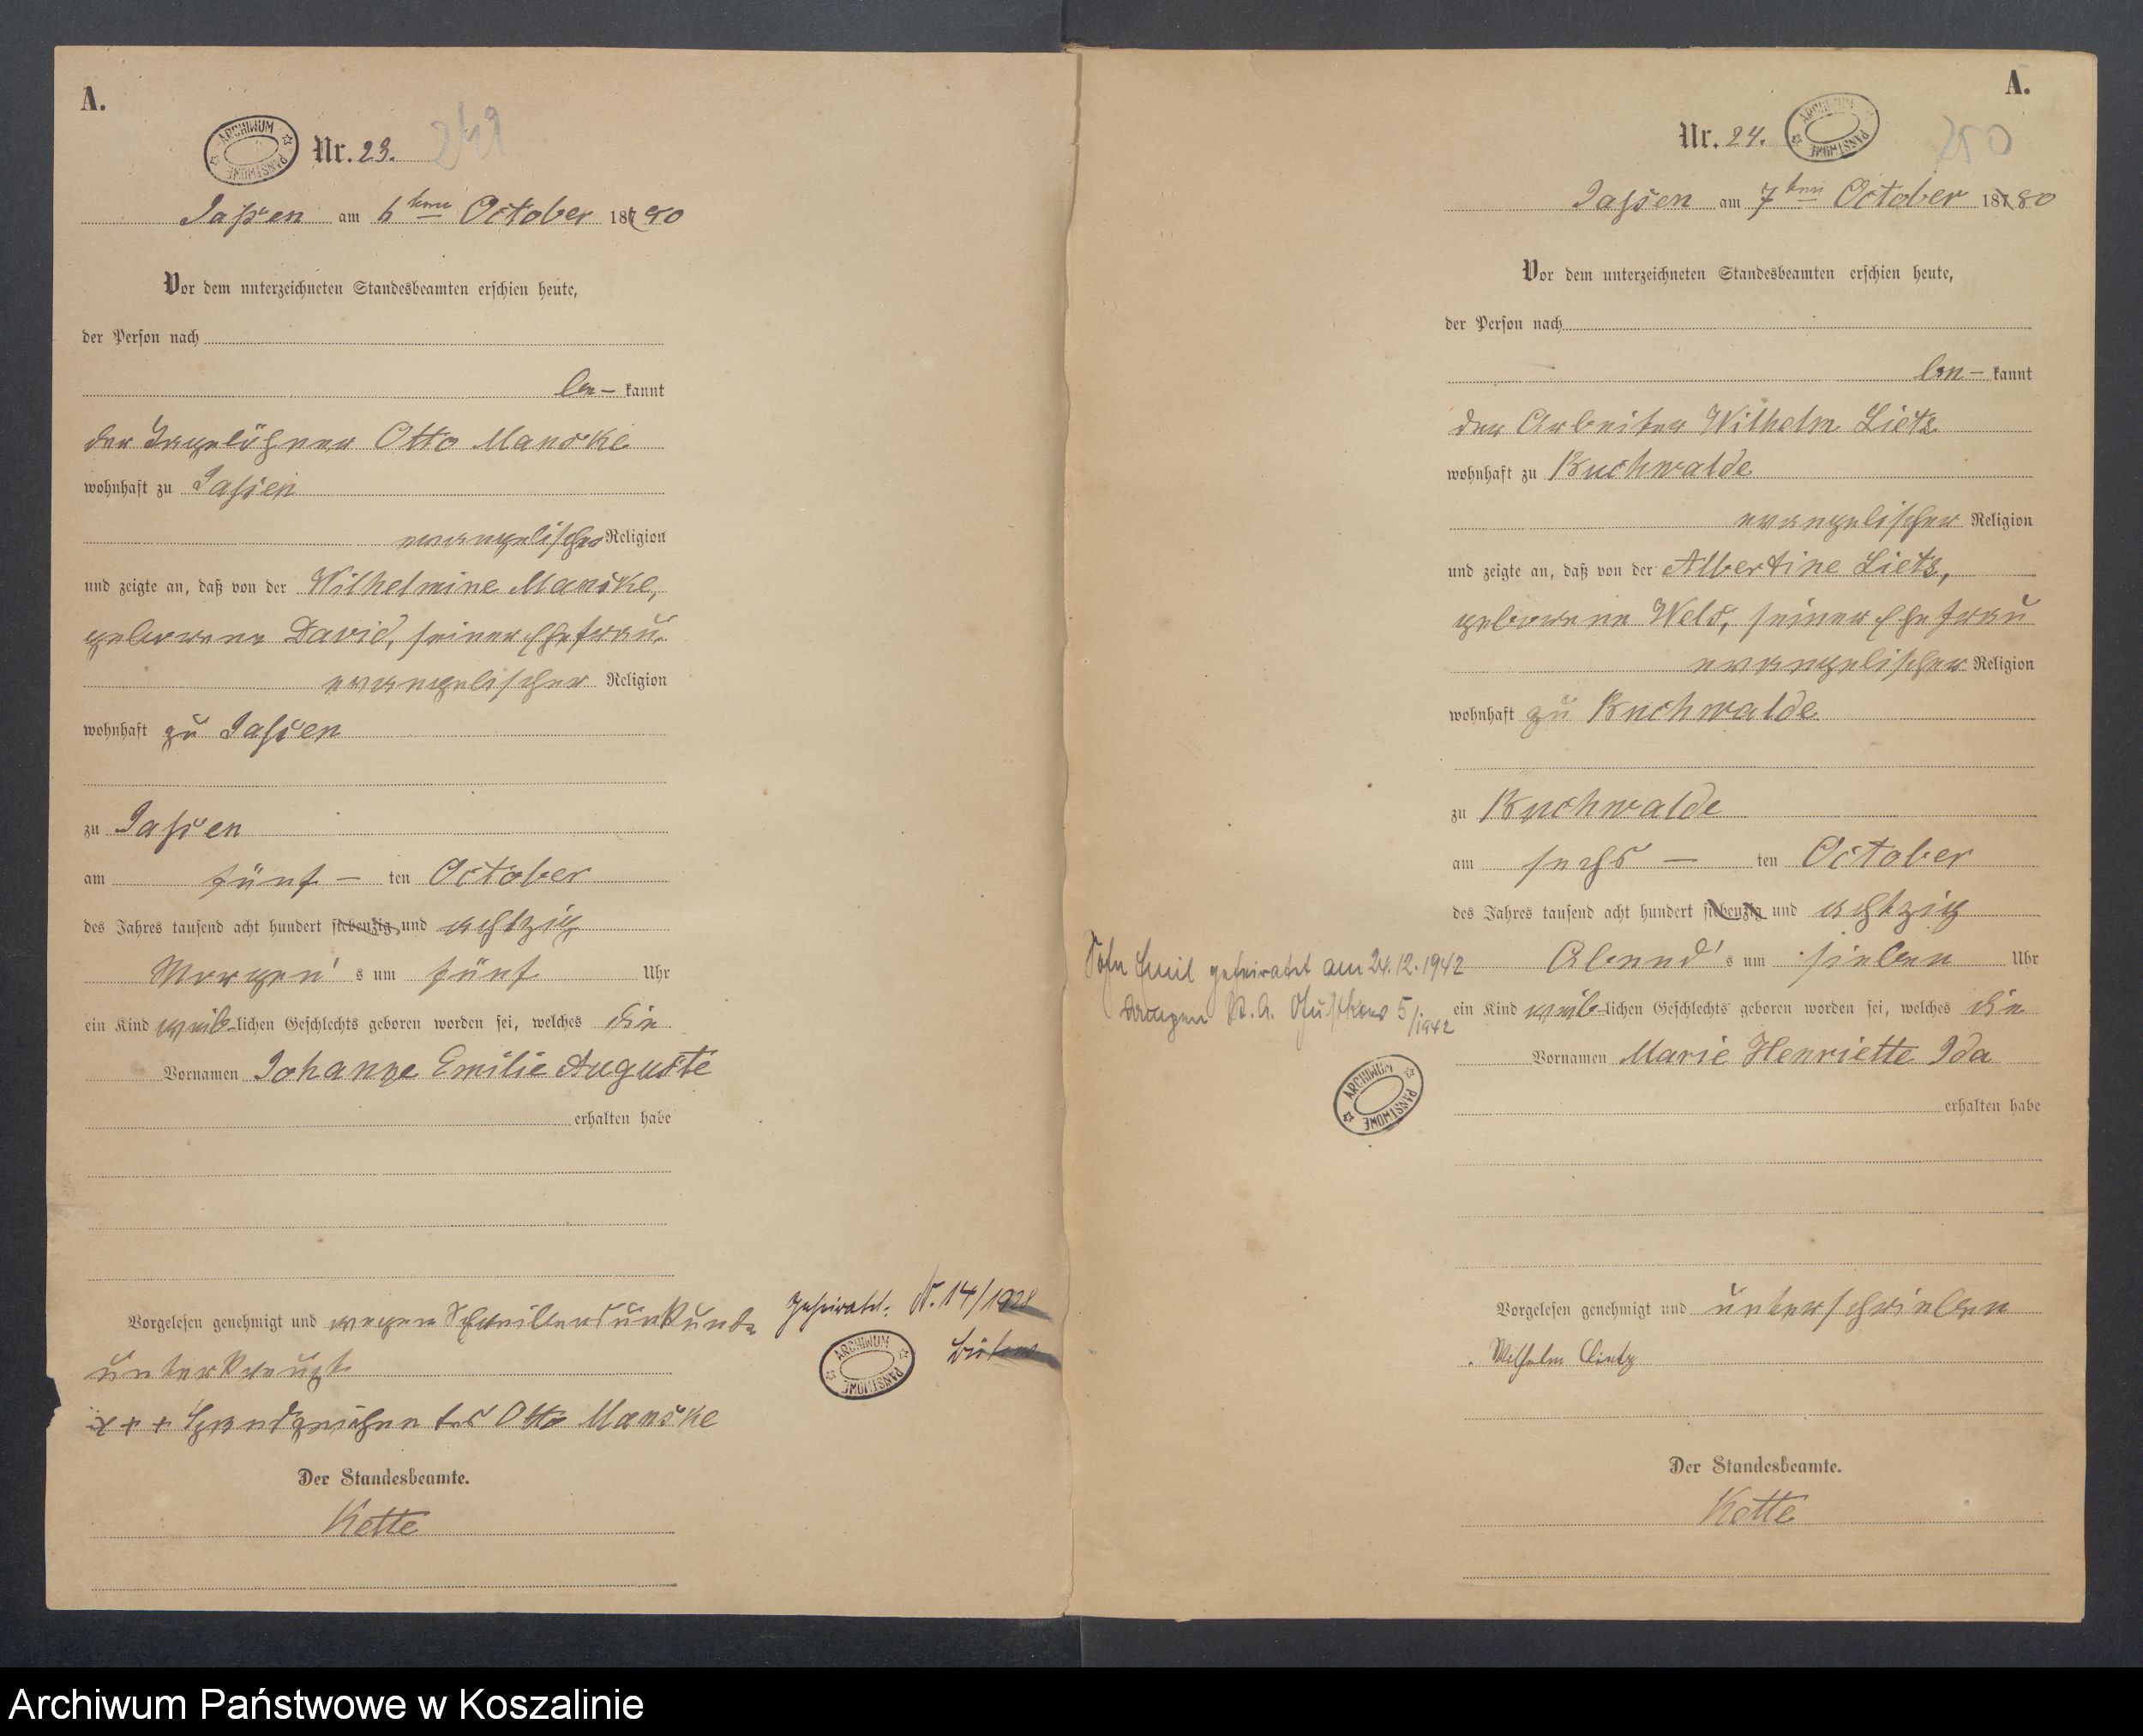 A.
ARCHIWUM PAŃSTWOWE
Nr. 23.
249
Jassen am 6ten October 1880
Vor dem unterzeichneten Standesbeamten erschien heute,
der Person nach
be- kannt
der Tagelöhner Otto Manske
wohnhaft zu Jassen
evangelischer Religion
und zeigte an, daß von der Wilhelmine Manske,
geborene David, seiner Ehefrau
evangelischer Religion
wohnhaft zu Jassen
zu Jassen
am fünf- ten October
des Jahres tausend acht hundert siebenzig und achtzig
Morgen's um fünf Uhr
ein Kind weib-lichen Geschlechts geboren worden sei, welches die
Vornamen Johanne Emilie Auguste
erhalten habe
Vorgelesen genehmigt und wegen Schreibensunkunde
unterkreuzt
+++ Handzeichen des Otto Manske
Der Standesbeamte.
Kette
Geheiratet: N. 14/1928
ARCHIWUM PAŃSTWOWE
A.
Nr. 24.
ARCHIWUM PAŃSTWOWE
250
Jassen am 7ten October 1880
Vor dem unterzeichneten Standesbeamten erschien heute,
der Person nach
be- kannt
der Arbeiter Wilhelm Lietz
wohnhaft zu Buchwalde
evangelischer Religion
und zeigte an, daß von der Albertine Lietz,
geborene Wels, seiner Ehefrau
evangelischer Religion
wohnhaft zu Buchwalde
zu Buchwalde
am sechs - ten October
des Jahres tausend acht hundert siebenzig und achtzig
Abend's um sieben Uhr
ein Kind weib-lichen Geschlechts geboren worden sei, welches die
Vornamen Marie Henriette Ida
erhalten habe
Sohn Emil geheiratet am 24.12.1942
St. A. 5/1942
ARCHIWUM PAŃSTWOWE
Vorgelesen genehmigt und unterschrieben
Wilhelm Lietz
Der Standesbeamte.
Kette
Archiwum Państwowe w Koszalinie